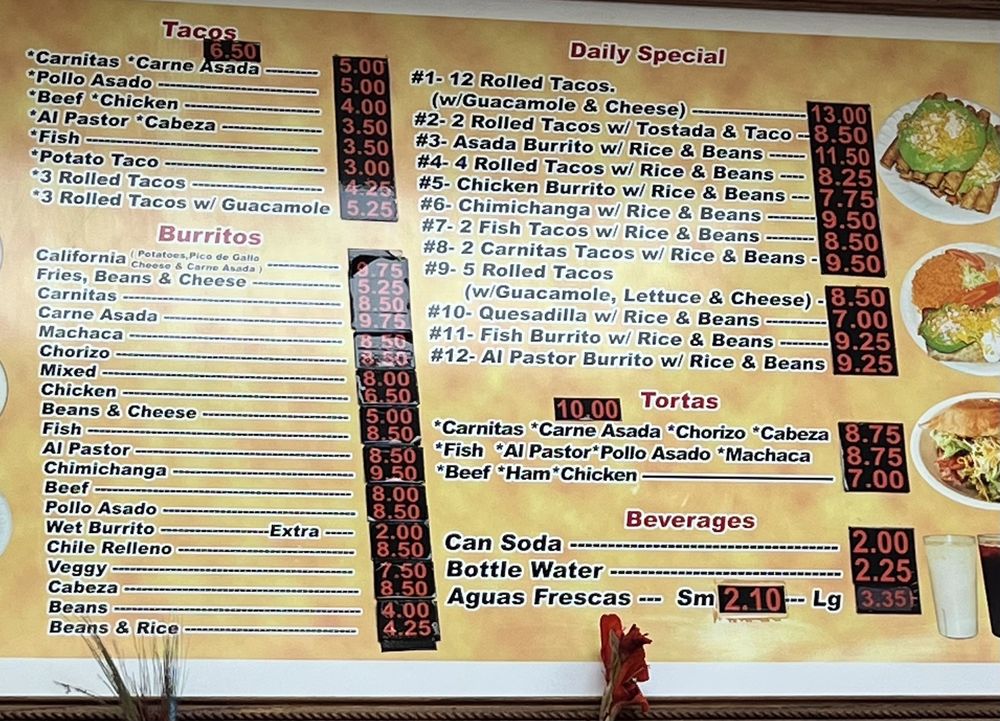 Tacos
6.50
*Carnitas *Carne Asada 5.00
*Pollo Asado 5.00
*Beef *Chicken 4.00
*Al Pastor *Cabeza 3.50
*Fish 3.50
*Potato Taco 3.00
*3 Rolled Tacos 4.25
*3 Rolled Tacos w/ Guacamole 5.25
Burritos
California (Potatoes,Pico de Gallo
Cheese & Carne Asada) 9.75
Fries, Beans & Cheese 5.25
Carnitas 8.50
Carne Asada 9.75
Machaca 8.50
Chorizo 8.50
Mixed 8.00
Chicken 6.50
Beans & Cheese 5.00
Fish 8.50
Al Pastor 8.50
Chimichanga 9.50
Beef 8.00
Pollo Asado 8.50
Wet Burrito Extra 2.00
Chile Relleno 8.50
Veggy 7.50
Cabeza 8.50
Beans 4.00
Beans & Rice 4.25
Daily Special
#1- 12 Rolled Tacos.
(w/Guacamole & Cheese) 13.00
#2- 2 Rolled Tacos w/ Tostada & Taco 8.50
#3- Asada Burrito w/ Rice & Beans 11.50
#4- 4 Rolled Tacos w/ Rice & Beans 8.25
#5- Chicken Burrito w/ Rice & Beans 7.75
#6- Chimichanga w/ Rice & Beans 9.50
#7- 2 Fish Tacos w/ Rice & Beans 8.50
#8- 2 Carnitas Tacos w/ Rice & Beans 9.50
#9- 5 Rolled Tacos
(w/Guacamole, Lettuce & Cheese) 8.50
#10- Quesadilla w/ Rice & Beans 7.00
#11- Fish Burrito w/ Rice & Beans 9.25
#12- Al Pastor Burrito w/ Rice & Beans 9.25
Tortas
10.00
*Carnitas *Carne Asada *Chorizo *Cabeza 8.75
*Fish *Al Pastor*Pollo Asado *Machaca 8.75
*Beef *Ham*Chicken 7.00
Beverages
Can Soda 2.00
Bottle Water 2.25
Aguas Frescas --- Sm 2.10 --- Lg 3.35